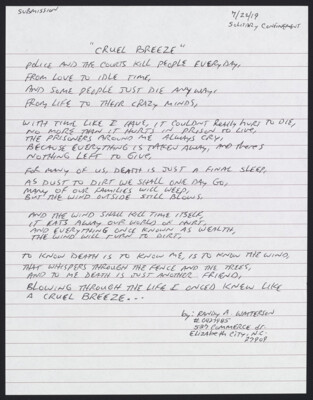 SUBMISSION
7/22/19
SOLITARY CONFINEMENT
"CRUEL BREEZE"
POLICE AND THE COURTS KILL PEOPLE EVERYDAY,
FROM LOVE TO IDLE TIME,
AND SOME PEOPLE JUST DIE ANYWAY
FROM LIFE TO THEIR CRAZY MINDS,
WITH TIME LIKE I HAVE, IT COULDN'T REALLY HURT TO DIE,
NO MORE THAN IT HURTS IN PRISON TO LIVE,
THE PRISONERS AROUND ME ALWAYS CRY,
BECAUSE EVERYTHING IS TAKEN AWAY, AND there's
NOTHING LEFT TO GIVE,
FOR MANY OF US, DEATH IS JUST A FINAL SLEEP,
AS DUST TO DIRT WE SHALL ONE DAY GO,
MANY OF OUR FAMILIES WILL WEEP,
BUT THE WIND OUTSIDE STILL BLOWS.
AND THE WIND SHALL KILL TIME ITSELF,
IT EATS AWAY OUR WORLD OF HURT,
AND EVERYTHING ONCE KNOWN AS WEALTH,
THE WIND WILL TURN TO DIRT.
TO KNOW DEATH IS TO KNOW ME, IS TO KNOW THE WIND,
THAT WHISPERS THROUGH THE FENCE AND THE TREES,
AND TO ME DEATH IS JUST ANOTHER FRIEND,
BLOWING THROUGH THE LIFE I ONCED KNEW LIKE
A CRUEL BREEZE...
by: RANDY A. WATTERSON
COMMERCE dr.
ELIZABETH CITY, N.C.